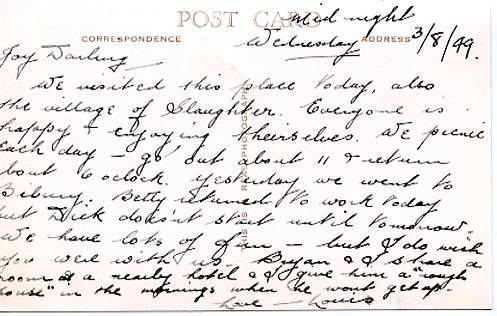 POST CARD
mid night
CORRESPONDENCE
Wednesday
ADDRESS 3/8/49.
Joy Darling
We visited this place today, also
the village of Slaughter. Everyone is
happy & enjoying theirselves. We picnic
each day - go out about 11 & return
about 6 oclock. Yesterday we went to
Bibury. Betty returned to work today
but Dick doesn't start until tomorrow.
We have lots of fun - but I do wish
you were with us. Bryan & I share a
room at a nearby hotel & I give him a "rough
house" in the mornings when he wont get up.
Love - Louis